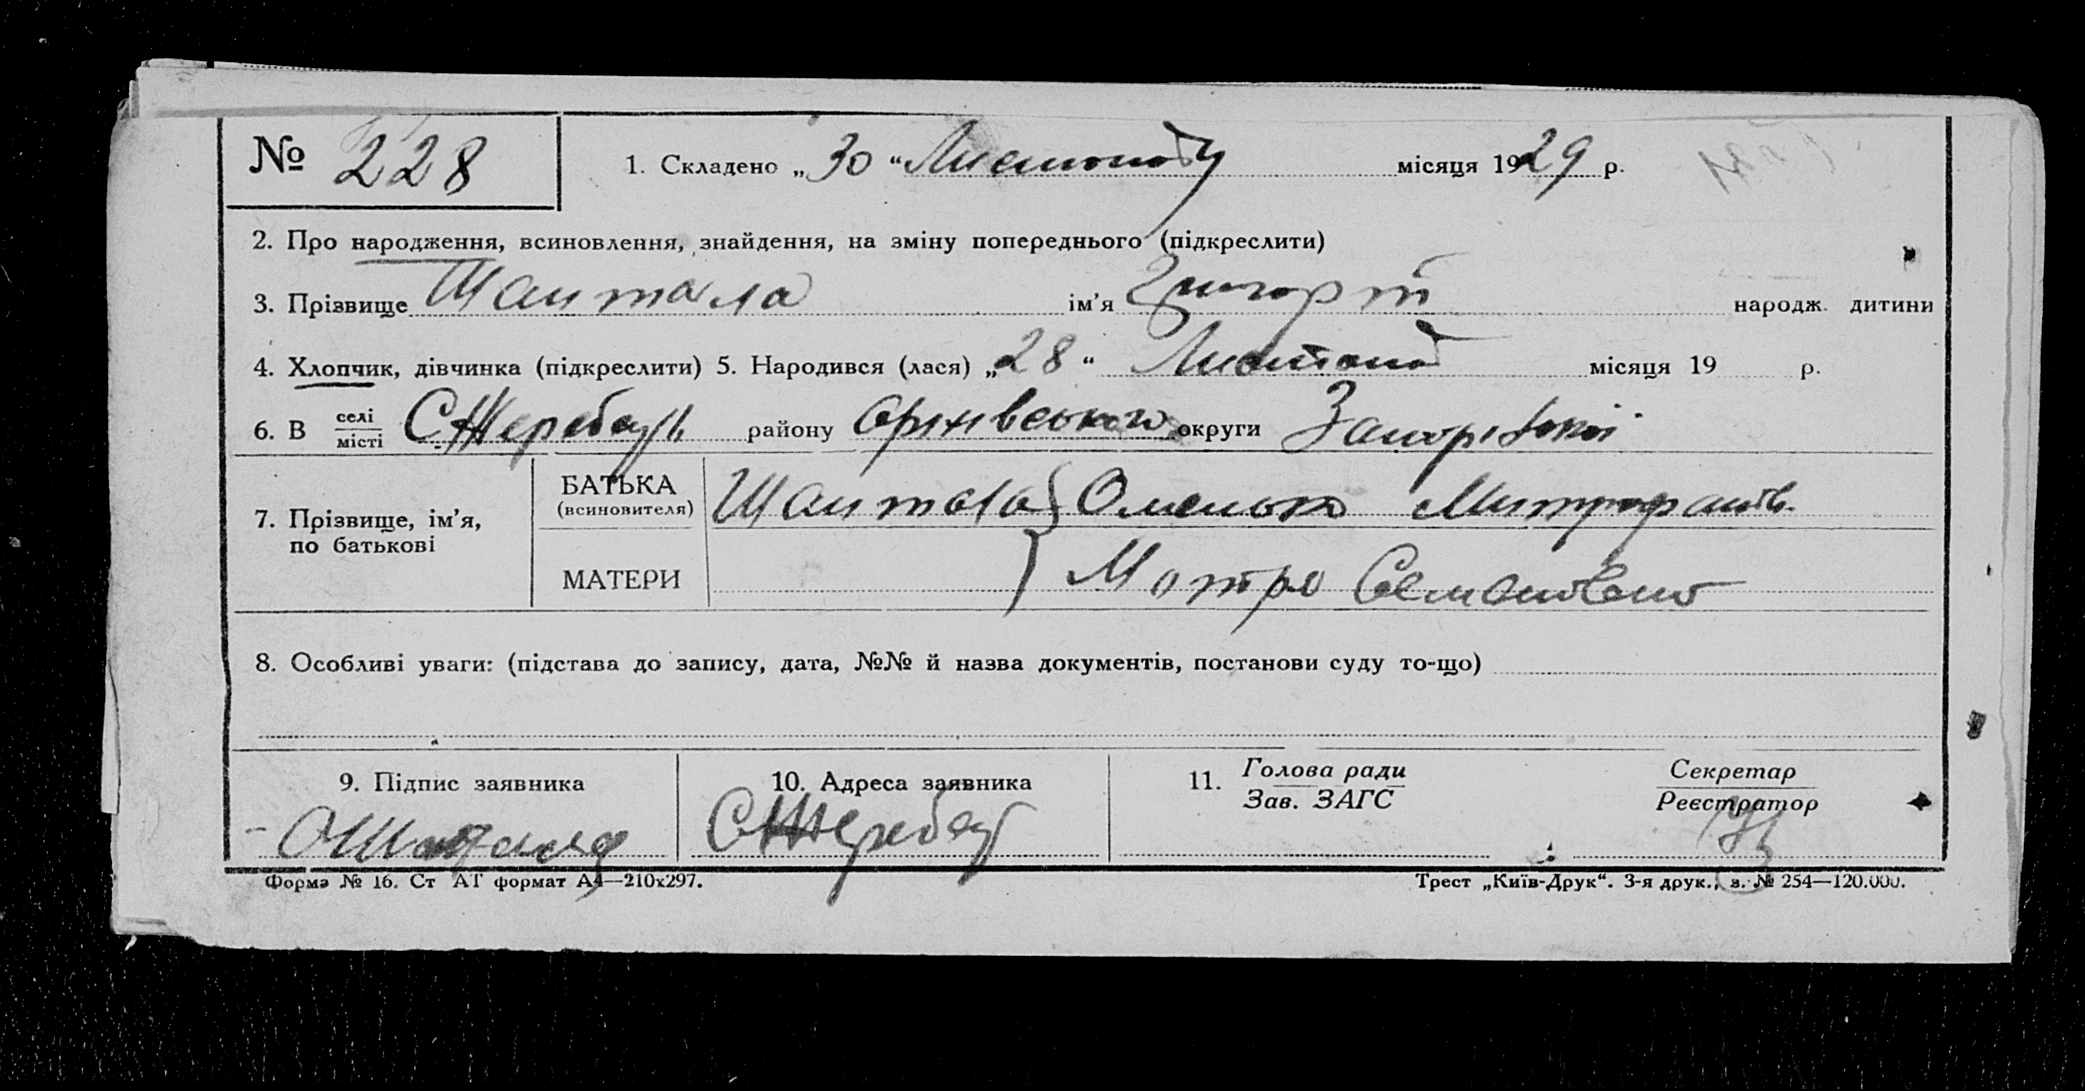 № 228
1. Складено „30“ Листопаду місяця 1929 р.
2. Про народження, всиновлення, знайдення, на зміну попереднього (підкреслити)
3. Прізвище Шаптала ім’я Григорій народж. дитини
4. Хлопчик, дівчинка (підкреслити) 5. Народився (лася) „28“ Листопад місяця 19 р.
6. В селі місті С Жеребець району Оріхівського округи Запоріжської
7. Прізвище, ім’я, по батькові
БАТЬКА (всиновителя) Шаптала Омелько Митрофанов.
МАТЕРИ Мотря Семеновна
8. Особливі уваги: (підстава до запису, дата, №№ й назва документів, постанови суду то-що)
9. Підпис заявника
10. Адреса заявника
11. Голова ради Зав. ЗАГС
Секретар Реєстратор
ОШаптала
С Жеребец
Форма № 16. Ст АТ формат А4—210х297.
Трест „Київ-Друк“. 3-я друк., з. № 254—120.000.